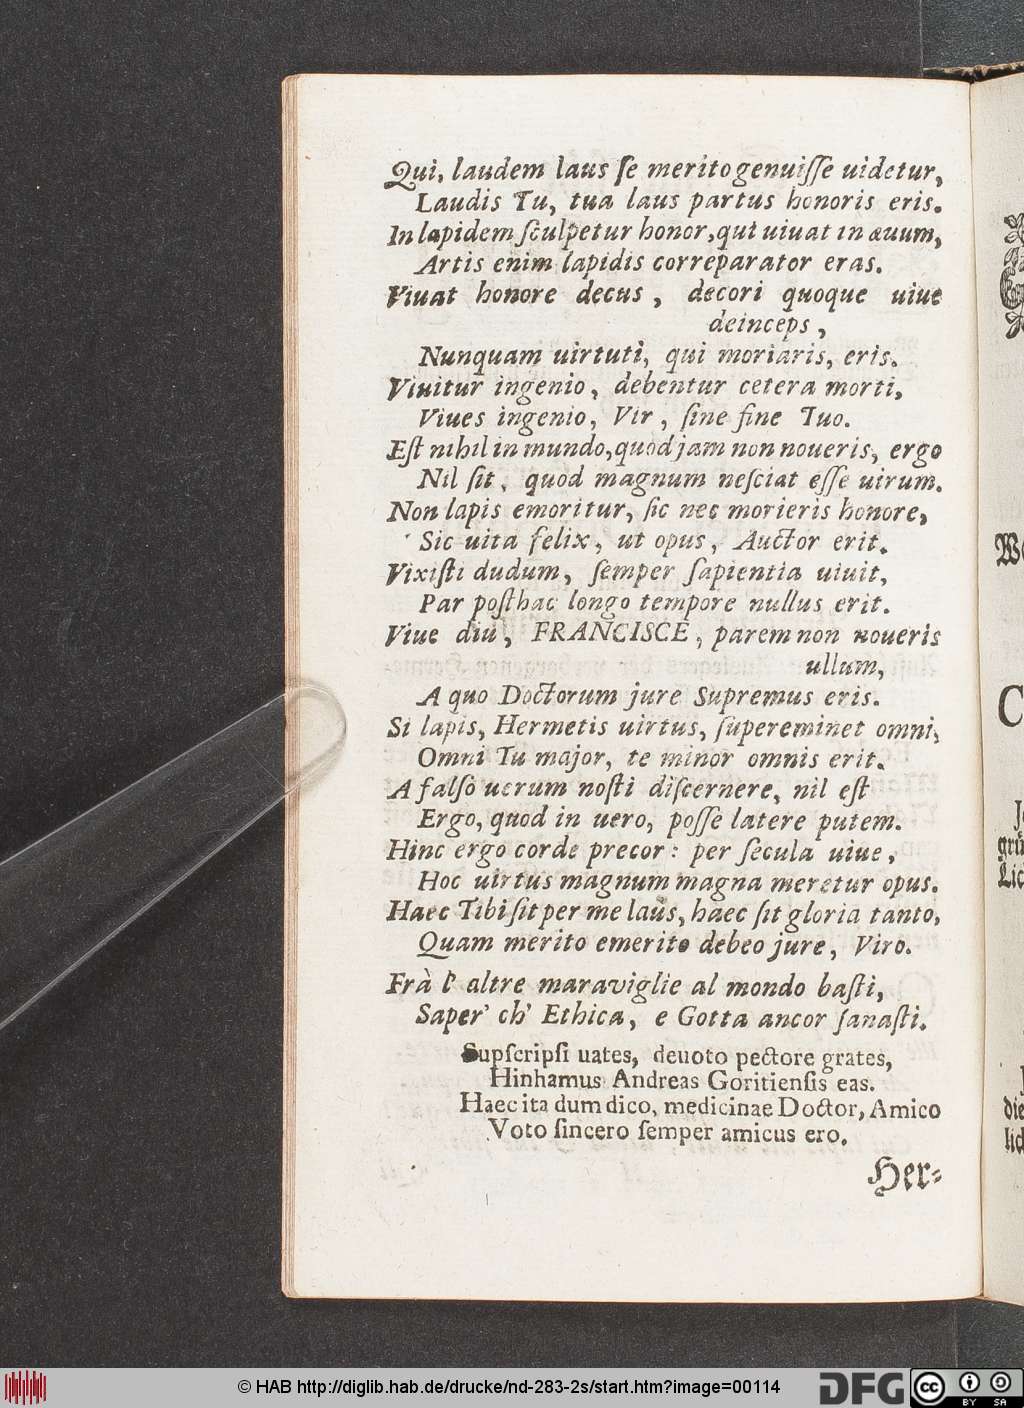 Qui, laudem laus ſe merito genuiſſe uidetur,
Laudis Tu, tua laus partus honoris eris.
In lapidem ſculpetur honor, qui uiuat in æuum,
Artis enim lapidis correparator eras.
Viuat honore decus, decori quoque uiue
deinceps,
Nunquam uirtuti, qui moriaris, eris.
Viuitur ingenio, debentur cetera morti,
Viues ingenio, Vir, ſine fine Tuo.
Eſt nihil in mundo, quod jam non noueris, ergo
Nil ſit, quod magnum neſciat eſſe uirum.
Non lapis emoritur, ſic nec morieris honore,
Sic uita felix, ut opus, Auctor erit.
Vixiſti dudum, ſemper ſapientia uiuit,
Par poſthac longo tempore nullus erit.
Viue diu, FRANCISCE, parem non noueris
ullum,
A quo Doctorum jure Supremus eris.
Si lapis, Hermetis uirtus, ſupereminet omni,
Omni Tu major, te minor omnis erit.
A falſò uerum noſti diſcernere, nil eſt
Ergo, quod in uero, poſſe latere putem.
Hinc ergo corde precor: per ſecula uiue,
Hoc uirtus magnum magna meretur opus.
Haec Tibi ſit per me laus, haec ſit gloria tanto,
Quam merito emerito debeo jure, Viro.
Frà l' altre maraviglie al mondo baſti,
Saper' ch' Ethica, e Gotta ancor ſanaſti.
Supſcripſi uates, deuoto pectore grates,
Hinhamus Andreas Goritienſis eas.
Haec ita dum dico, medicinae Doctor, Amico
Voto ſincero ſemper amicus ero.
Her-
© HAB http://diglib.hab.de/drucke/nd-283-2s/start.htm?image=00114
DFG
cc BY SA